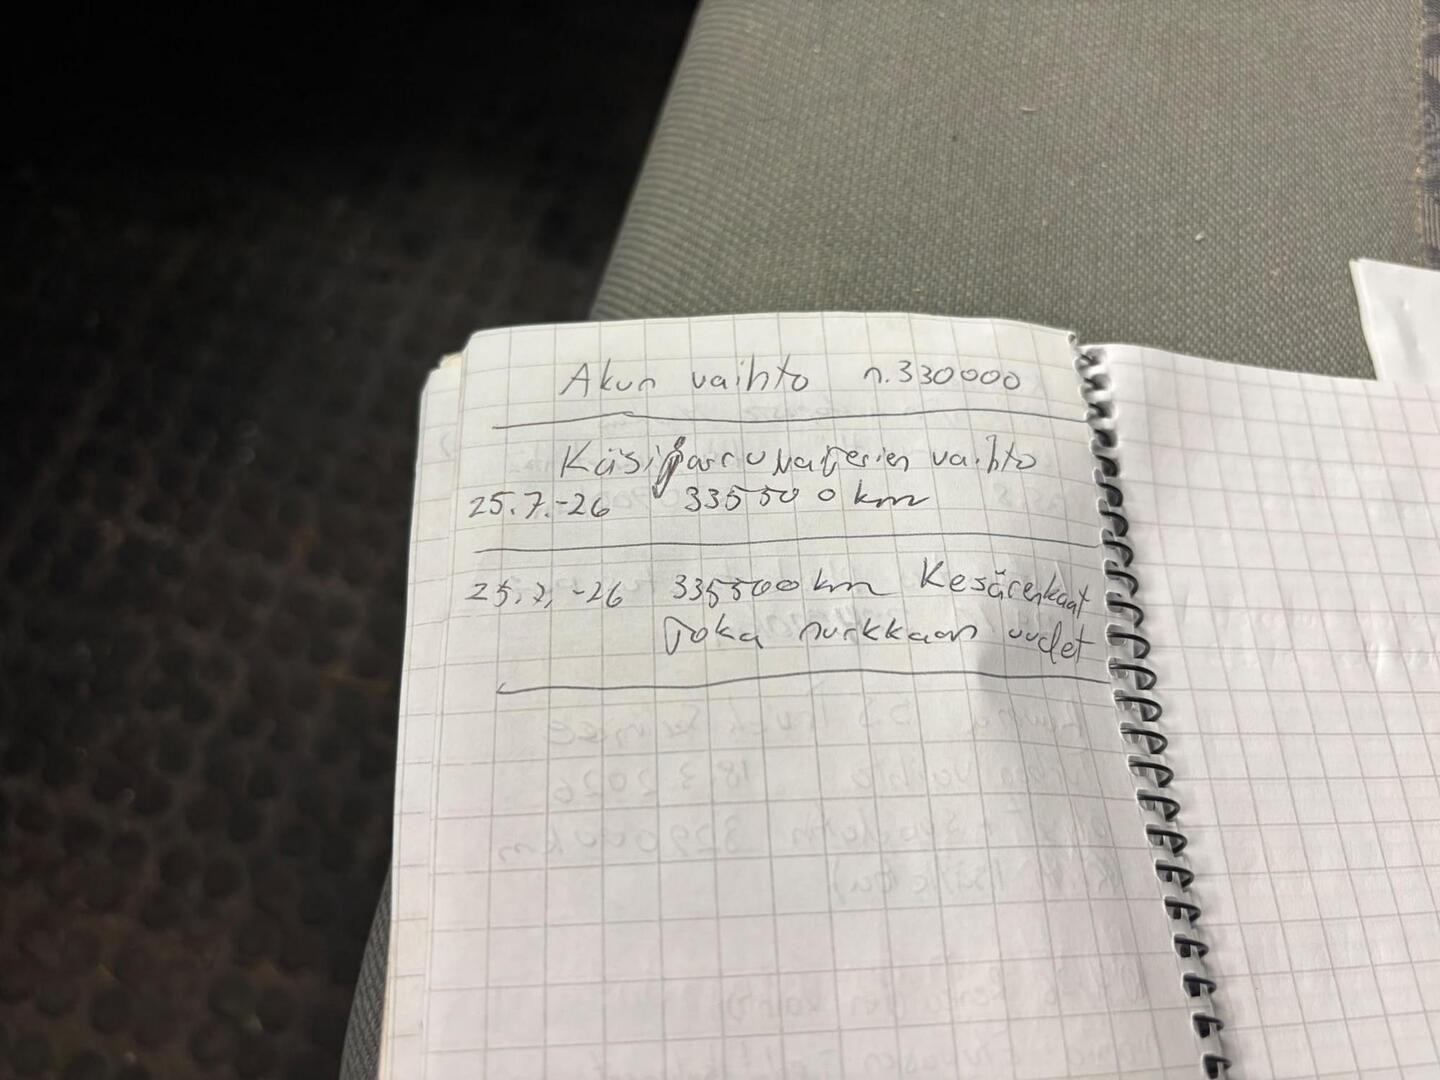 Akun vaihto n.330000
Käsijarruvaijerien vaihto
25.7.-26 335500 km
25.7.-26 335500 km Kesärenkaat
Joka nurkkaan uudet
18.3.2026
329000 km